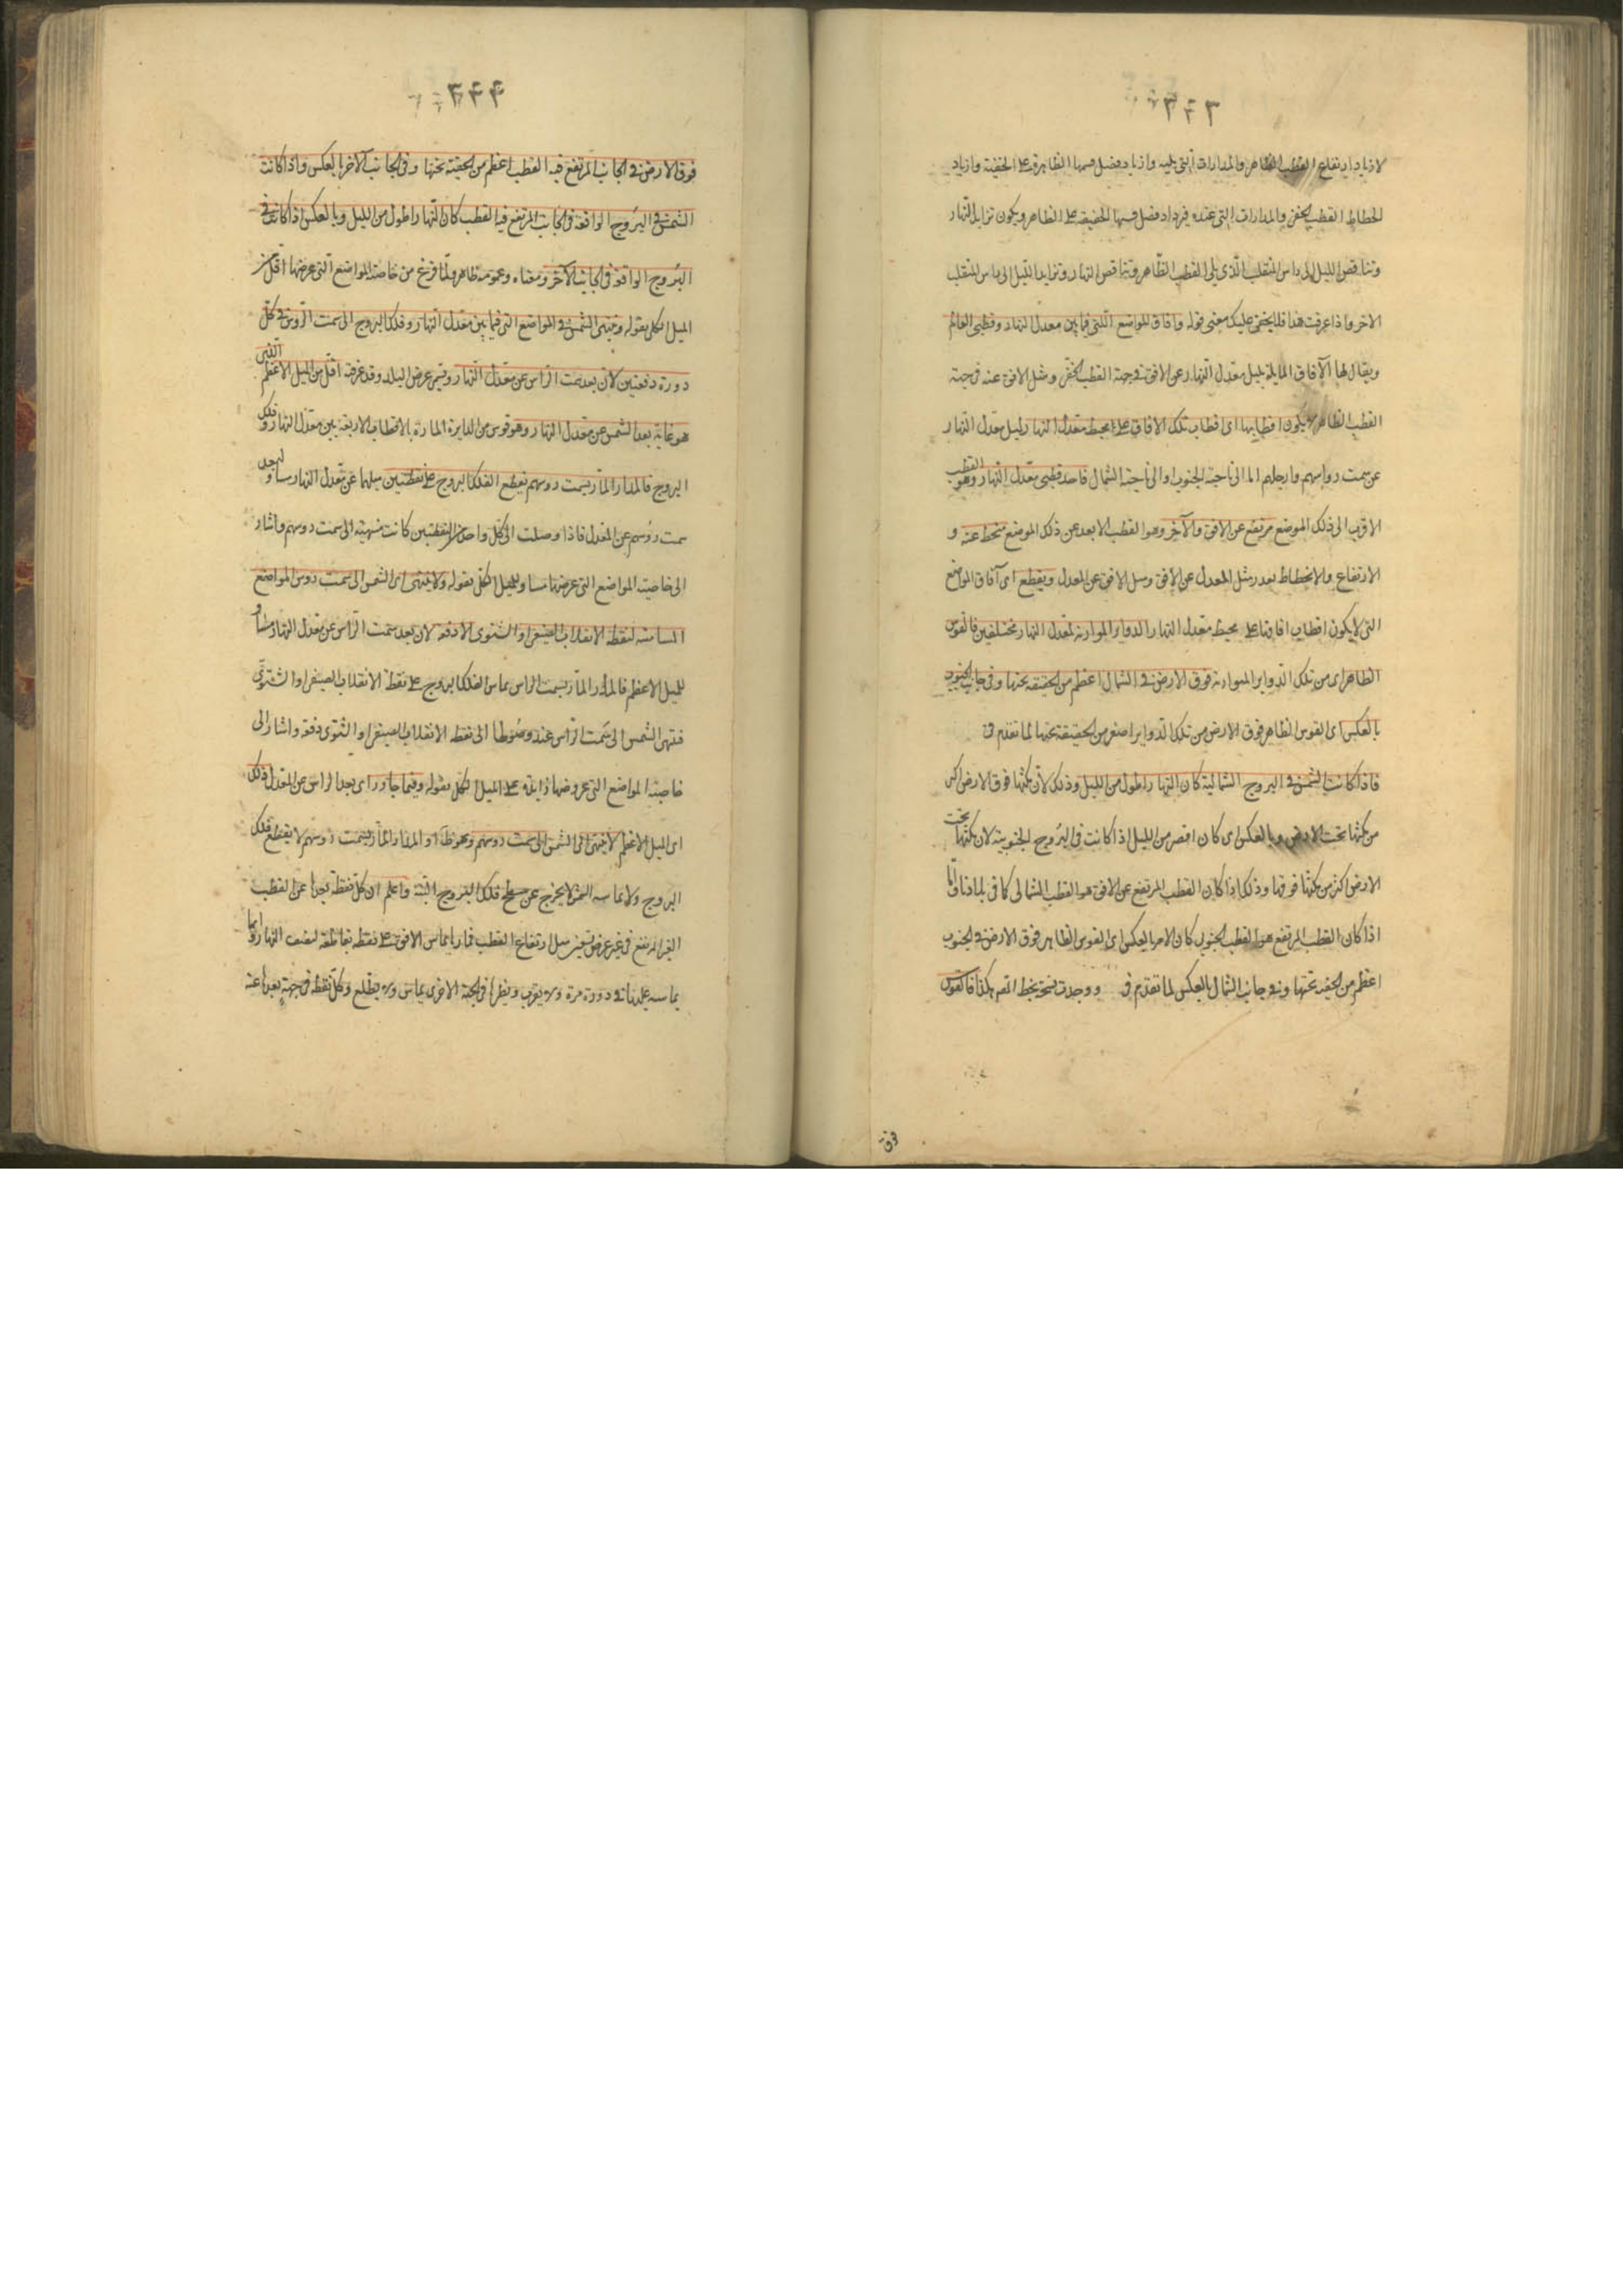 لازدياد ارتفاع القطب الظاهر والمدارات التى يليه وازدياد فضل قسيها الظاهرة على الخفية وازدياد
انحطاط القطب الخفى والمدارات التى عنده فيزداد فضل قسيها الخفية على الظاهر ويكون تزايد النهار
وتناقص الليل الى راس المنقلب الذى يلى القطب الظاهر وتناقص النهار وتزايد الليل الى راس المنقلب
الاخر واذا عرفت هذا فلا يخفى عليك معنى قوله وآفاق المواضع اللتى فيما بين معدل النهار وقطبى العالم
ويقال لها الآفاق المايلة لميل معدل النهار عن الافق فى جهة القطب الخفى وميل الافق عنه فى جهة
القطب الظاهر لا يكون اقطابها اى اقطاب تلك الافاق على محيط معدل النهار لميل معدل النهار
عن سمت رؤسهم وارجلهم اما الى ناحية الجنوب او الى ناحية الشمال فاحد قطبى معدل النهار وهو القطب
الاقرب الى ذلك الموضع مرتفع عن الافق والآخر وهو القطب الابعد عن ذلك الموضع منحط عنه و
الارتفاع والانحطاط بعدر مثل المعدل عن الافق وميل الافق عن المعدل ويقطع اى آفاق المواضع
التى لا يكون اقطاب افاقها على محيط معدل النهار الدواير الموازية لمعدل النهار بمختلفين فالقوس
الظاهر اى من تلك الدواير المتوازية فوق الارض فى الشمال اعظم من الخفية تحتها وفى جانب الجنوب
بالعكس اى القوس الظاهر فوق الارض من تلك الدواير اصغر من الخفيفة تحتها لما تقدم ق
فاذا كانت الشمس فى البروج الشمالية كان النهار اطول من الليل وذلك لان مكثها فوق الارض اكثر
من مكثها تحت الارض وبالعكس اى كان اقصر من الليل اذا كانت فى البروج الجنوبية لان مكثها تحت
الارض اكثر من مكثها فوقها وذلك اذا كان القطب المرتفع عن الافق هو القطب الشمالى كما فى بلادنا واما
اذا كان القطب المرتفع هو القطب الجنوبى كان الامر بالعكس اى القوس الظاهر فوق الارض فى الجنوب
اعظم من الخفية تحتها وفى جانب الشمال بالعكس لما تقدم ق ووجدت نسخة بخط المص هكذا فالقوس
فوق
فوق الارض فى الجانب المرتفع فيه القطب اعظم من الخفية تحتها وفى الجانب الآخر بالعكس واذا كانت
الشمس فى البروج الواقعة فى الجانب المرتفع فيه القطب كان النهار اطول من الليل وبالعكس اذا كانت فى
البروج الواقعة فى الجانب الآخر ومعناه وعمومه ظاهر ولما فرغ من خاصة المواضع التى عرضها اقل من
الميل الكلى بقوله وينتهى الشمس فى المواضع التى فيما بين معدل النهار وفلك البروج الى سمت الرؤس فى كل
دورة دفعتين لان بعد سمت الراس عن معدل النهار وتسمى عرض البلد وقد عرفته اقل من الميل الاعظم الذى
هو غاية بعد الشمس عن معدل النهار وهو قوس من الدايرة المارة بالاقطاب الاربعة بين معدل النهار وفلك
البروج فالمدار المار بسمت رؤسهم يقطع الفلك البروج على نقطتين ميلهما عن معدل النهار مساو لبعد
سمت رؤسهم عن المعدل فاذا وصلت الى كل واحد من النقطتين كانت منتهية الى سمت رؤسهم واشار
الى خاصية المواضع التى عرضها مساو للميل الكلى بقوله ولا ينتهى اى الشمس الى سمت رؤس المواضع
المسامتة لنقطة الانقلاب الصيفى او الشتوى الا دفعة لان بعد سمت الراس عن معدل النهار مساو
للميل الاعظم فالمدار المار بسمت الراس يماس الفلك البروج على نقطة الانقلاب الصيفى او الشتوى
فتنتهى الشمس الى سمت الراس عند وصولها الى نقطة الانقلاب الصيفى او الشتوى دفعة واشار الى
خاصية المواضع التى عروضها زايدة على الميل الكلى بقوله وفيما جاوز اى بعد الراس عن المعدل ذلك
اى الميل الاعظم لا ينتهى اى الشمس الى سمت رؤسهم وهو ظ اذ المدار المار بسمت رؤسهم لا يقطع فلك
البروج ولا يماسه الشمس لا يخرج عن سطح فلك البروج البتة واعلم ان كل نقطة بعدها عن القطب
الغير المرتفع فى غير عرض تسعين مثل ارتفاع القطب فمدارها يماس الافق على نقطة تقاطعه لنصف النهار
يماسه عليها فى دورة مرة ولا يغرب ونظيرها فى الجهة الاخرى يماس ولا يطلع وكل نقطة فى جهة بعدها عنه